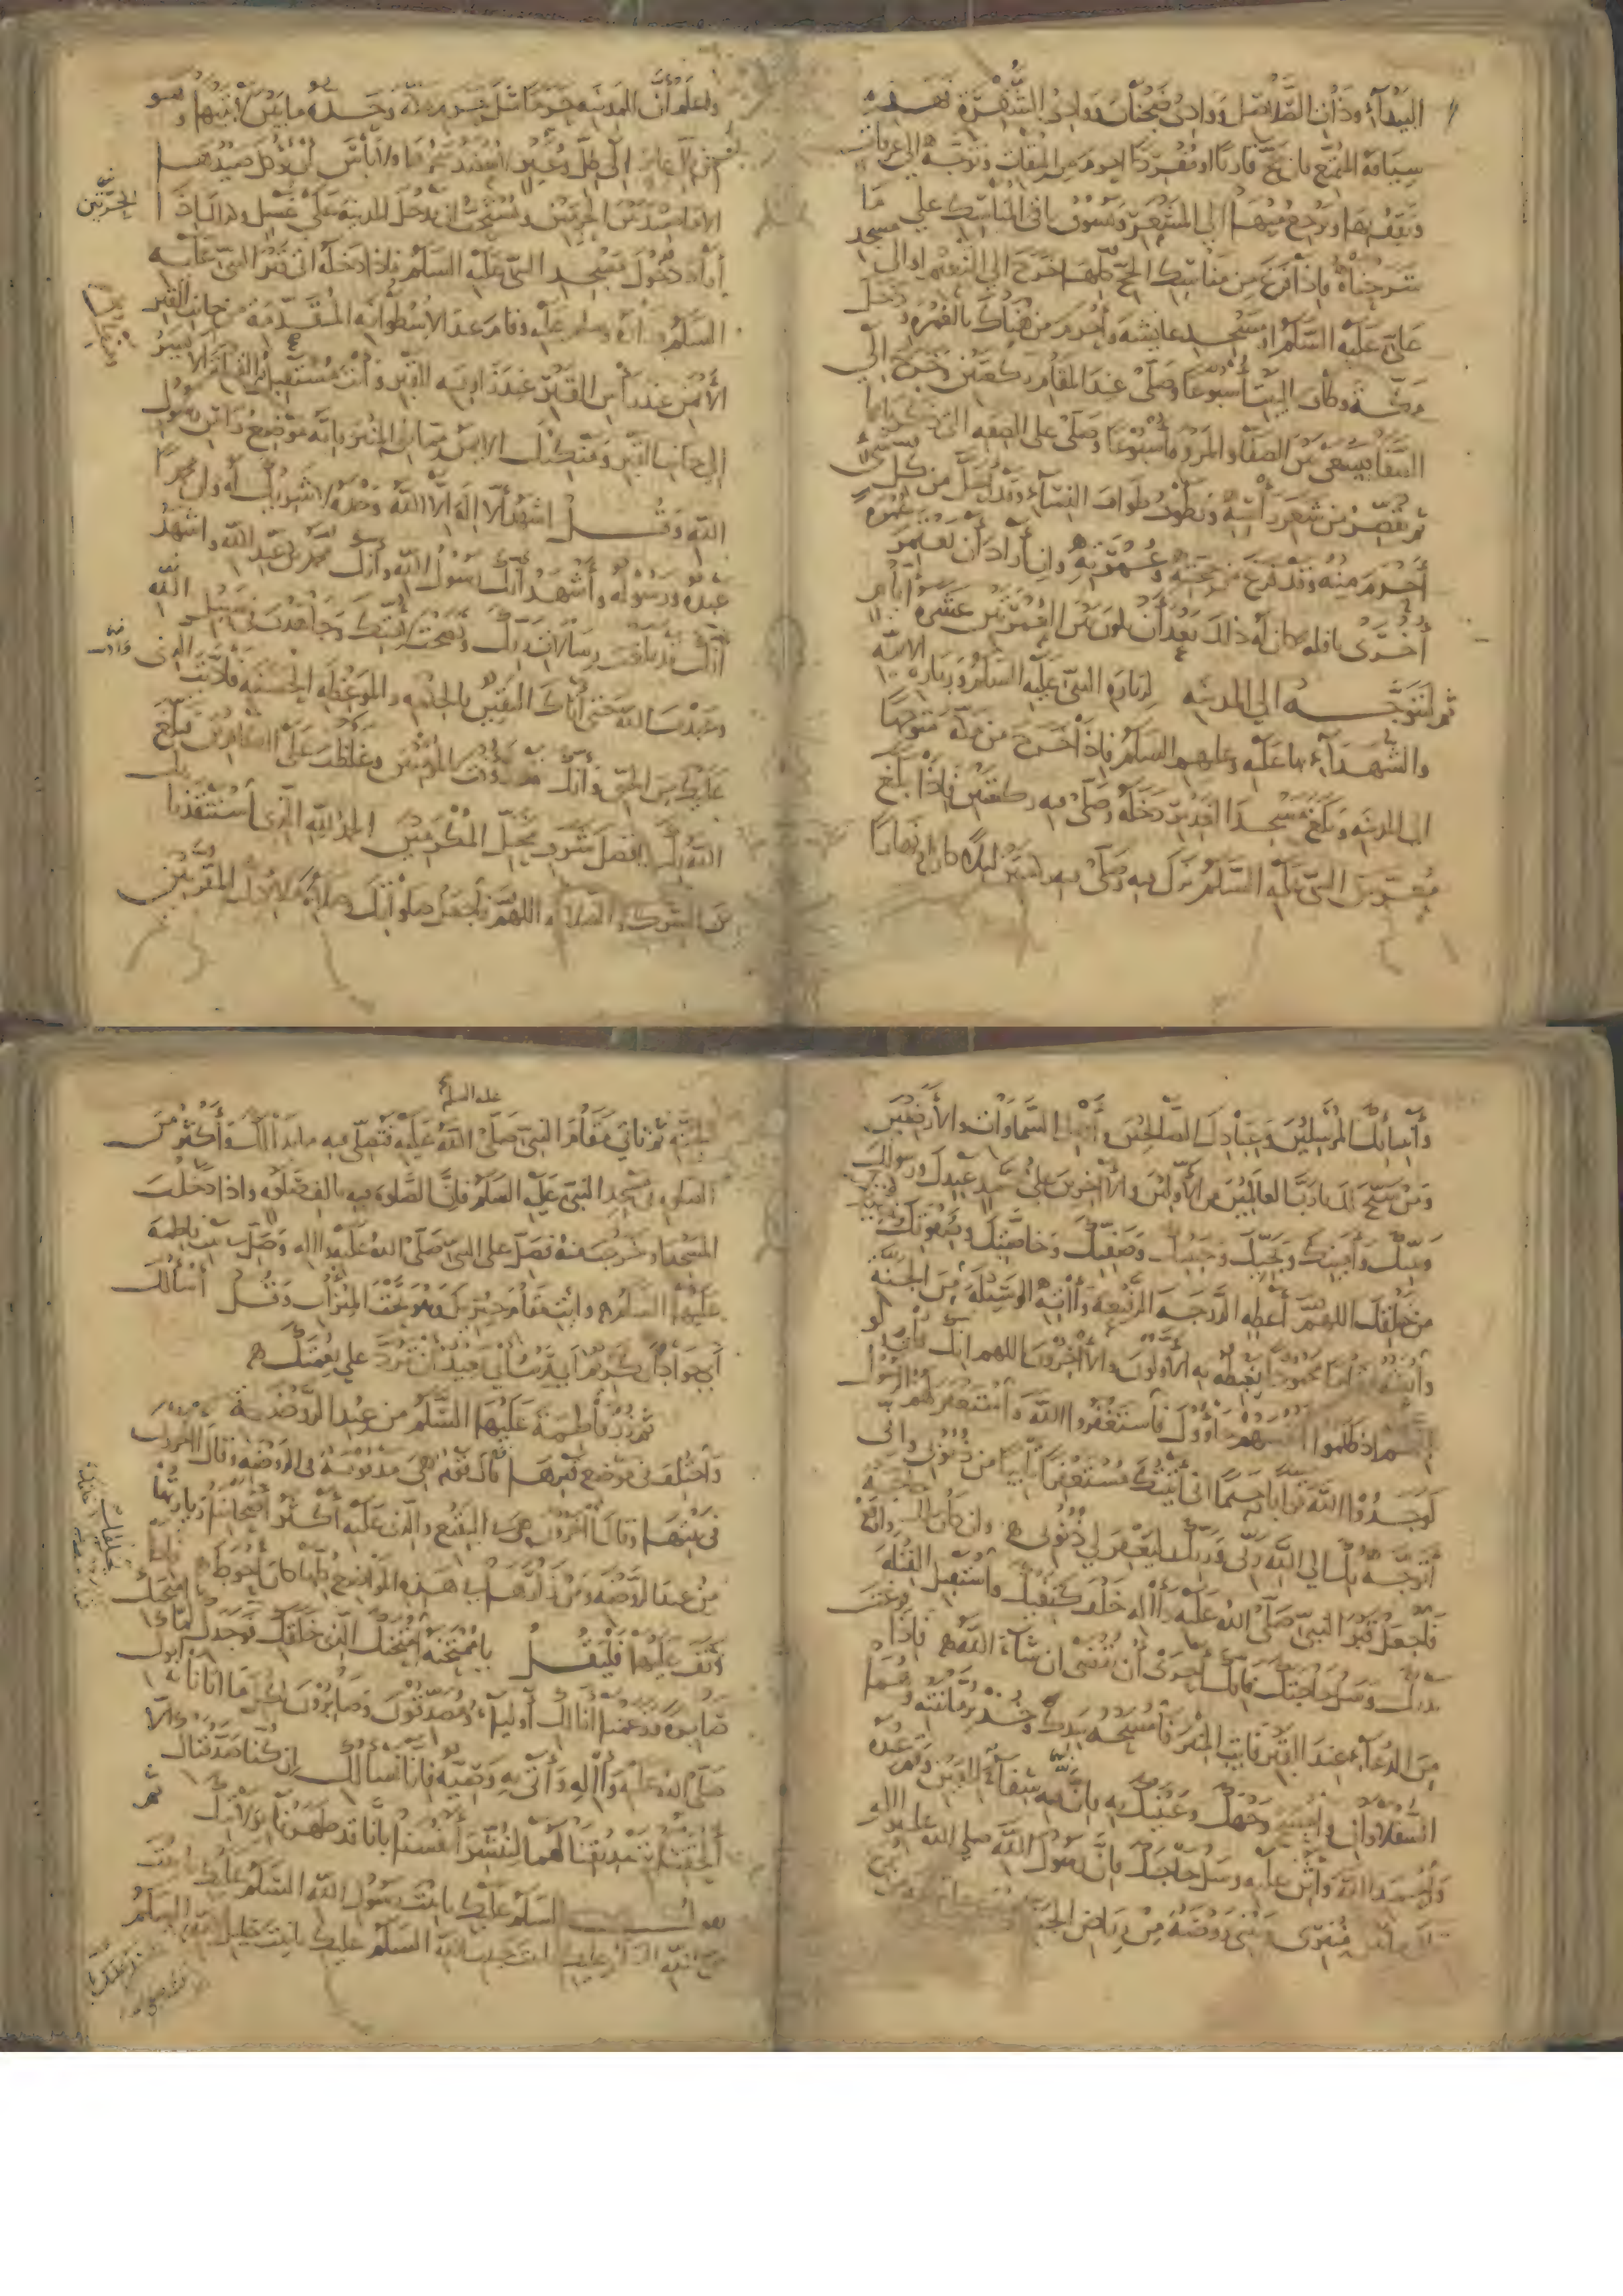 البيداء وذات الصلاصل ووادى ضجنان ووادى الشقرة فهذه
سياقة المتمتع فان حج قارنا او مفردا احرم من الميقات وتوجه الى عرفات
ويقف بها ويرجع منها الى المشعر ويسوق باقى المناسك على ما
شرحناه فاذا فرغ من مناسك الحج كلها خرج الى التنعيم او الى مسجد
على عليه السلم او مسجد عايشة واحرم من هناك بالعمرة ودخل
مكة وطاف بالبيت اسبوعا وصلى عند المقام ركعتين وخرج الى
الصفا فيسعى بين الصفا والمروة اسبوعا وصلى على الصفة التى ذكرناها
ثم يقصر من شعر راسه ويطوف طواف النساء وقد احل من كل شىء
احرم منه وقد فرغ من حجته وعمرته وان اراد ان يعتمر عمرة
اخرى نافلة كان له ذلك بعد ان يكون بين العمرتين عشرة ايام
ثم ليتوجه الى المدينة لزيارة النبى عليه السلم وزيارة الائمة
والشهداء بها عليه وعليهم السلم فاذا خرج من مكة متوجها
الى المدينة وبلغ مسجد الغدير دخله وصلى فيه ركعتين فاذا بلغ
معرس النبى عليه السلم نزل فيه وصلى فيه ركعتين ليلا كان او نهارا
واعلم ان للمدينة حرما مثل حرم مكة وحده ما بين لابتيها وهو
من ظل عاير الى ظل وعير لا يعضد شجرها ولا باس ان يؤكل صيدها
الا ما صيد بين الحرتين ويستحب ان يدخل المدينة على غسل وكذلك اذا
اراد دخول مسجد النبى عليه السلم فاذا دخله اتى قبر النبى عليه
السلم وزاره وسلم عليه وقام عند الاسطوانة المقدمة من جانب القبر
الايمن عند راس القبر عند زاوية القبر وانت مستقبل القبلة الايسر
الى جانب القبر ومنكبك الايمن مما يلى المنبر فانه موضع راس رسول
الله وقل اشهد ان لا اله الا الله وحده لا شريك له وان محمدا
عبده ورسوله واشهد انك رسول الله وانك محمد بن عبد الله واشهد
انك قد بلغت رسالات ربك ونصحت لامتك وجاهدت فى سبيل الله
وعبدت الله حتى اتاك اليقين بالحكمة والموعظة الحسنة واديت الذى
عليك من الحق وانك قد رؤفت بالمؤمنين وغلظت على الكافرين فبلغ
الله بك افضل شرف محل المكرمين الحمد لله الذى استنقذنا بك
من الشرك والضلالة اللهم فاجعل صلواتك وصلاة ملائكتك المقربين
وانبيائك المرسلين وعبادك الصالحين واهل السماوات والارضين
ومن سبح لك يا رب العالمين من الاولين والاخرين على محمد عبدك ورسولك
ونبيك وامينك ونجيك وحبيبك وصفيك وخاصتك وصفوتك
من خلقك اللهم اعطه الدرجة الرفيعة واته الوسيلة من الجنة
وابعثه مقاما محمودا يغبطه به الاولون والاخرون اللهم انك قلت ولو
انهم اذ ظلموا انفسهم جاؤوك فاستغفروا الله واستغفر لهم الرسول
لوجدوا الله توابا رحيما انى اتيتك مستغفرا تائبا من ذنوبى وانى
اتوجه بك الى الله ربى وربك ليغفر لى ذنوبى وان كان لك حاجة
فاجعل قبر النبى صلى الله عليه واله خلف كتفيك واستقبل القبلة وارفع
يديك وسل حاجتك فانك احرى ان تقضى ان شاء الله فاذا فرغت
من الدعاء عند القبر فايت المنبر فامسحه بيدك وخذ برمانتيه وهما
السفلاوان وامسح وجهك وعينيك به فانه فيه شفاء للعين وقم عنده
واحمد الله واثن عليه وسل حاجتك فان رسول الله صلى الله عليه واله
قال ما بين منبرى وبيتى روضة من رياض الجنة
ثم تاتى مقام النبى صلى الله عليه فتصلى فيه ما بدا لك واكثر من
الصلوة فى مسجد النبى عليه السلم فان الصلوة فيه بالف صلوة واذا دخلت
المسجد او خرجت منه فصل على النبى صلى الله عليه واله وصل فى بيت فاطمة
عليها السلم وايت مقام جبريل وهو تحت الميزاب وقل اسألك
اى جواد اى كريم اى قريب اى بعيد ان ترد على نعمتك
ثم زر فاطمة عليها السلم من عند الروضة
واختلف فى موضع قبرها فقال قوم هى مدفونة فى الروضة وقال اخرون
فى بيتها وقالت اخرون هى بالبقيع والذى عليه اكثر اصحابنا زيارتها
من عند الروضة ومن زارها فى هذه المواضع كلها كان احوط فاذا
وقف عليها فليقل يا ممتحنة امتحنك الذى خلقك فوجدك لما امتحنك
صابرة وزعمنا انا لك اولياء ومصدقون وصابرون لكل ما اتانا به ابوك
صلى الله عليه واله واتى به وصيه فانا نسالك ان كنا صدقناك الا
الحقتنا بتصديقنا لهما لنبشر انفسنا بانا قد طهرنا بولايتك ثم
يقول السلم عليك يا بنت رسول الله السلم عليك يا بنت
نبى الله السلم عليك يا بنت حبيب الله السلم عليك يا بنت خليل الله السلم
الحرتين
عليه السلم